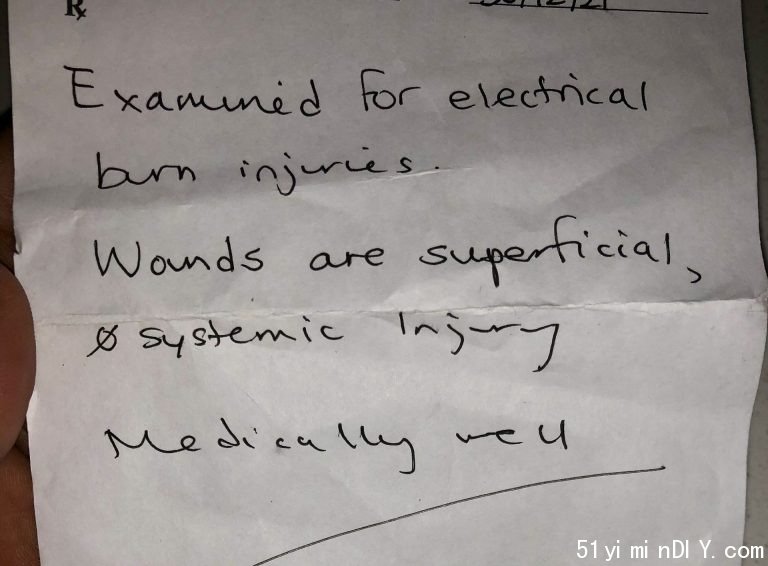 ℞
Examined for electrical
burn injuries.
Wounds are superficial,
ø systemic Injury
Medically well
51yiminDIY.com